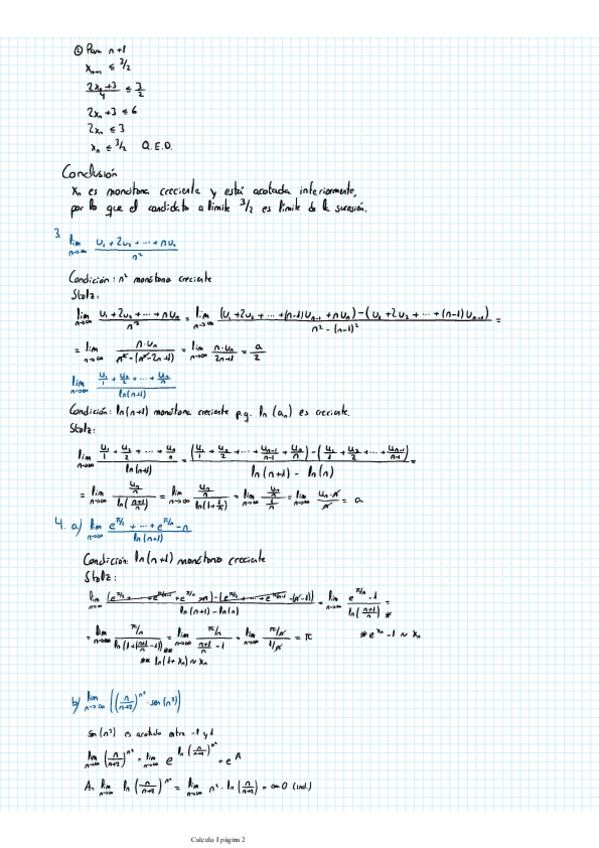 ② Para n+1
xₙ₊₁ ≤ 3/2
(2xₙ+3)/4 ≤ 3/2
2xₙ+3 ≤ 6
2xₙ ≤ 3
xₙ ≤ 3/2 Q.E.D.
Conclusión
xₙ es monótona creciente y está acotada inferiormente,
por lo que el candidato a límite 3/2 es límite de la sucesión.
3. lim n→∞ (u₁+2u₂+⋯+nuₙ)/n²
Condición: n² monótona creciente
Stolz:
lim n→∞ (u₁+2u₂+⋯+nuₙ)/n² = lim n→∞ ((u₁+2u₂+⋯+(n-1)uₙ₋₁+nuₙ)-(u₁+2u₂+⋯+(n-1)uₙ₋₁))/(n²-(n-1)²) =
= lim n→∞ (n·uₙ)/(n²-(n²-2n+1)) = lim n→∞ (n·uₙ)/(2n+1) = a/2
lim n→∞ (u₁/1+u₂/2+⋯+uₙ/n)/ln(n+1)
Condición: ln(n+1) monótona creciente p.q. ln(aₙ) es creciente.
Stolz:
lim n→∞ (u₁/1+u₂/2+⋯+uₙ/n)/ln(n+1) = ((u₁/1+u₂/2+⋯+uₙ₋₁/(n-1)+uₙ/n)-(u₁/1+u₂/2+⋯+uₙ₋₁/(n-1)))/(ln(n+1)-ln(n)) =
= lim n→∞ (uₙ/n)/ln((n+1)/n) = lim n→∞ (uₙ/n)/ln(1+1/n) = lim n→∞ (uₙ/n)/(1/n) = lim n→∞ (uₙ·n)/n = a
4. a) lim n→∞ (e^(π/1)+⋯+e^(π/n)-n)/ln(n+1)
Condición: ln(n+1) monótona creciente
Stolz:
= lim n→∞ (e^(π/n)-1)/ln((n+1)/n) * =
= lim n→∞ (π/n)/ln(1+(n+1)/n-1) ** = lim n→∞ (π/n)/((n+1)/n-1) = lim n→∞ (π/n)/(1/n) = π * e^(xₙ)-1 ~ xₙ
** ln(1+xₙ) ~ xₙ
b) lim n→∞ ((n/(n+2))^(n²)·sen(n³))
sen(n³) es acotada entre -1 y 1
lim n→∞ (n/(n+2))^(n²) = lim n→∞ e^(ln(n/(n+2))^(n²)) = e^A
A = lim n→∞ ln(n/(n+2))^(n²) = lim n→∞ n²·ln(n/(n+2)) = ∞·0 (ind.)
Calculo I página 2